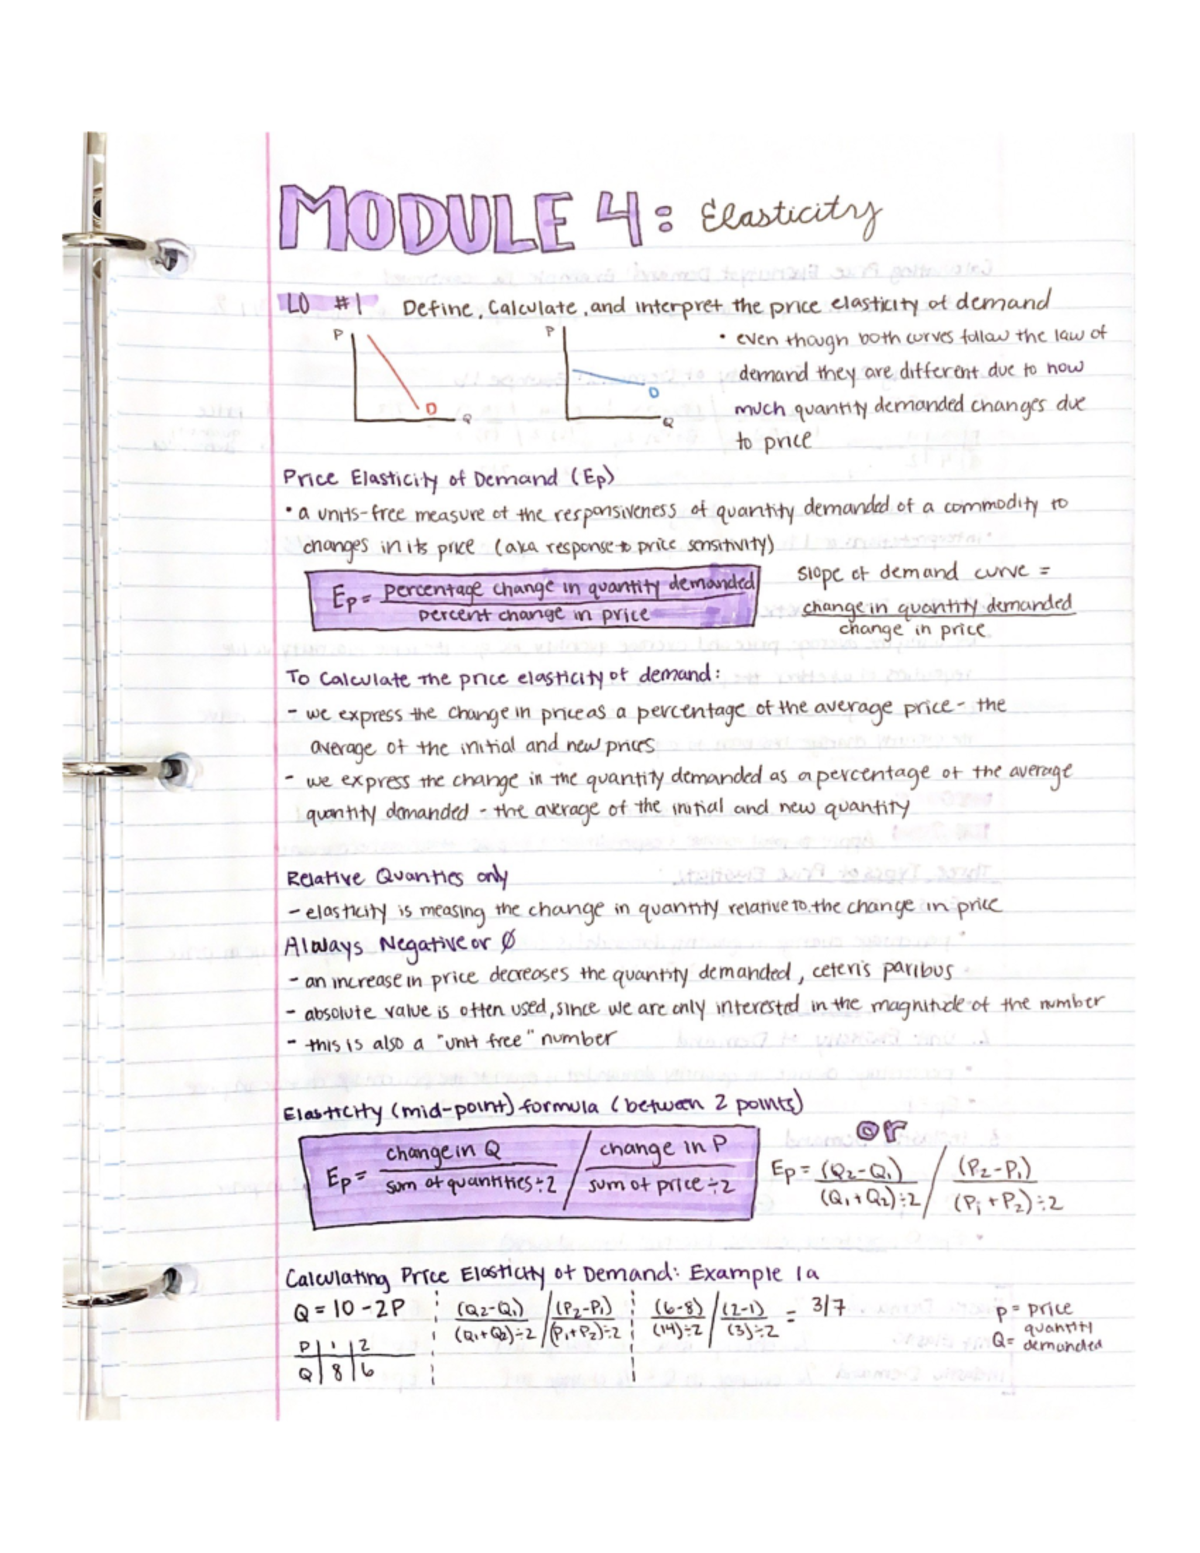 MODULE 4: Elasticity
LO #1 Define, Calculate, and interpret the price elasticity of demand
P D Q
P D Q
• even though both curves follow the law of
demand they are different due to how
much quantity demanded changes due
to price
Price Elasticity of Demand (Ep)
• a units-free measure of the responsiveness of quantity demanded of a commodity to
changes in its price (aka response to price sensitivity)
Ep = percentage change in quantity demanded
percent change in price
Slope of demand curve =
change in quantity demanded
change in price
To Calculate the price elasticity of demand:
- we express the change in price as a percentage of the average price - the
average of the initial and new prices
- we express the change in the quantity demanded as a percentage of the average
quantity demanded - the average of the initial and new quantity
Relative Quanties only
- elasticity is measing the change in quantity relative to the change in price
Always Negative or Ø
- an increase in price decreases the quantity demanded, ceteris paribus
- absolute value is often used, since we are only interested in the magnitude of the number
- this is also a "unit free" number
Elasticity (mid-point) formula (between 2 points)
Ep = change in Q / change in P
sum of quantities ÷ 2 / sum of price ÷ 2
or
Ep = (Q2-Q1) / (P2-P1)
(Q1+Q2)÷2 / (P1+P2)÷2
Calculating Price Elasticity of Demand: Example 1a
Q = 10 - 2P
P | 1 | 2
Q | 8 | 6
(Q2-Q1) / (P2-P1)
(Q1+Q2)÷2 / (P1+P2)÷2
(6-8) / (2-1) = 3/7
(14)÷2 / (3)÷2
p = price
Q = quantity
demanded